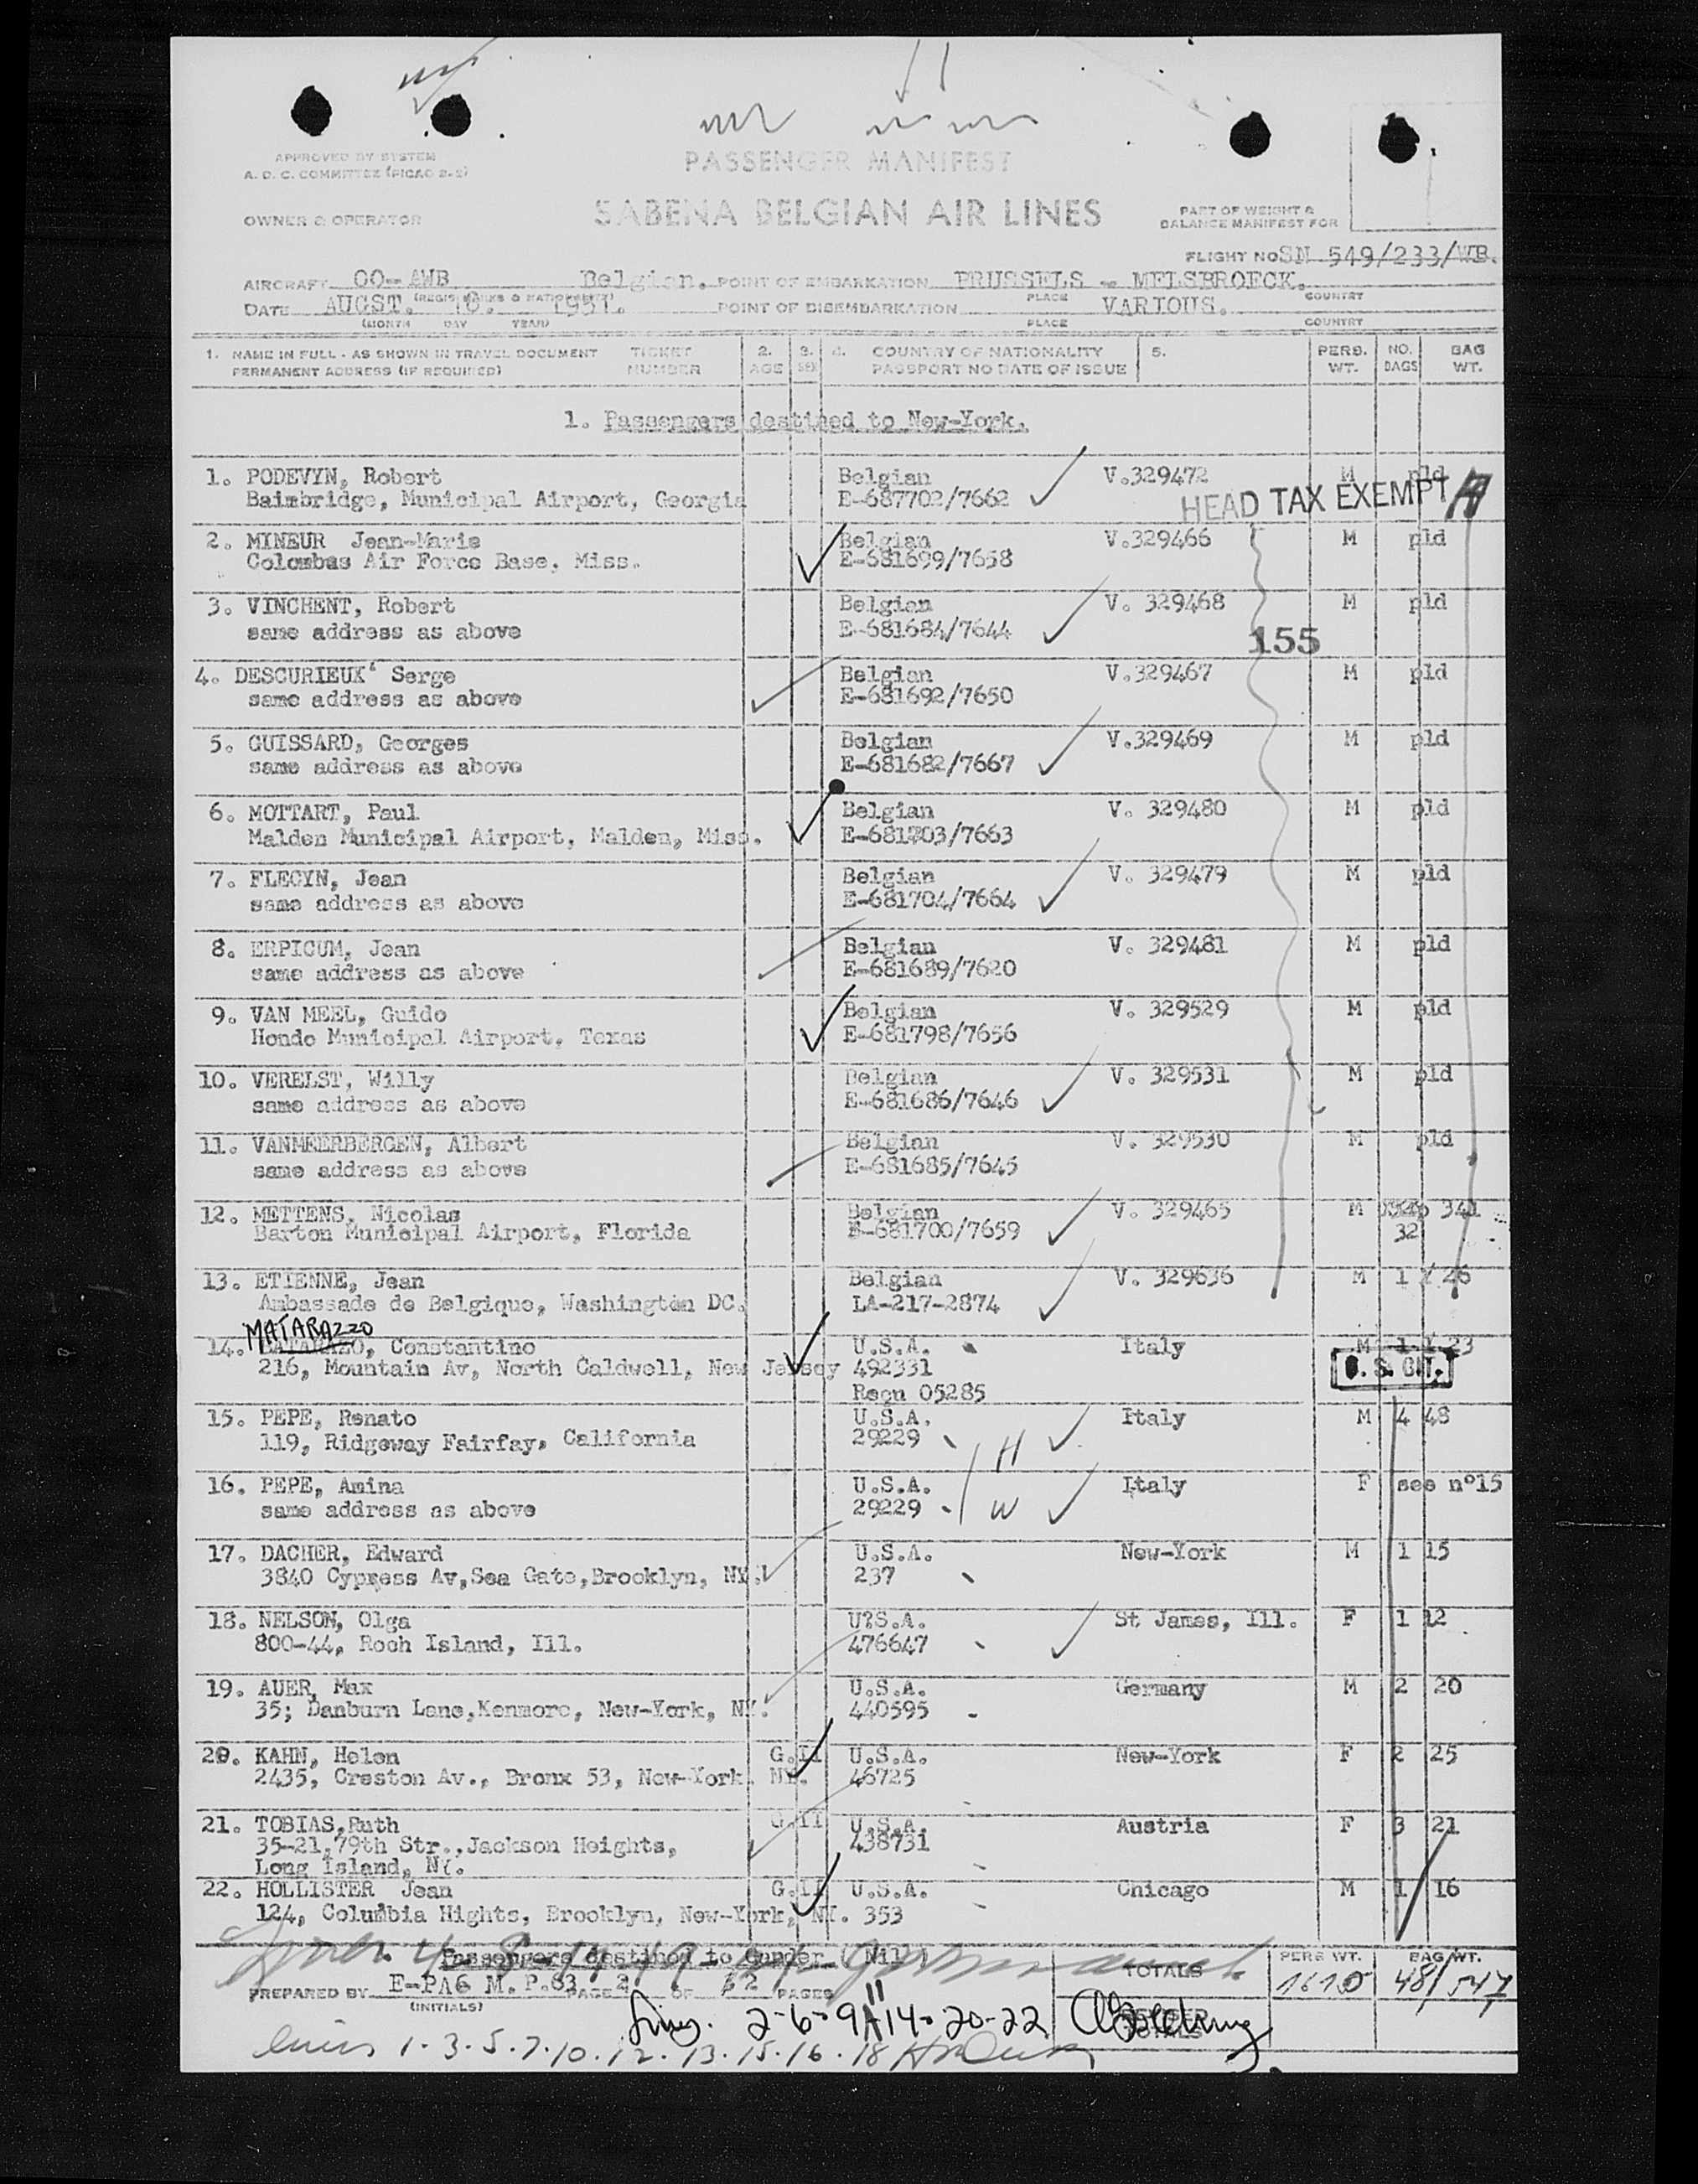 APPROVED BY SYSTEM
A. D. C. COMMITTEE (PICAO 2-2)
PASSENGER MANIFEST
OWNER & OPERATOR
SABENA BELGIAN AIR LINES
PART OF WEIGHT &
BALANCE MANIFEST FOR
FLIGHT NO SN 549/233/WB.
AIRCRAFT OO-AWB Belgian. POINT OF EMBARKATION BRUSSELS - MELSBROECK.
(REGIS. MARKS & NATIONALITY) PLACE COUNTRY
DATE AUGST. 10. 1951. POINT OF DISEMBARKATION VARIOUS.
(MONTH DAY YEAR) PLACE COUNTRY
1. NAME IN FULL - AS SHOWN IN TRAVEL DOCUMENT TICKET 2. 3. 4. COUNTRY OF NATIONALITY 5. PERS. NO. BAG
PERMANENT ADDRESS (IF REQUIRED) NUMBER AGE SEX PASSPORT NO DATE OF ISSUE WT. BAGS WT.
1. Passengers destined to New-York.
1. PODEVYN, Robert Belgian V.329472 M pld
Bainbridge, Municipal Airport, Georgia E-687702/7662 HEAD TAX EXEMPT
2. MINEUR Jean-Marie Belgian V.329466 M pld
Colombus Air Force Base, Miss. E-681699/7658
3. VINCHENT, Robert Belgian V. 329468 M pld
same address as above E-681684/7644 155
4. DESCURIEUX' Serge Belgian V.329467 M pld
same address as above E-681692/7650
5. GUISSARD, Georges Belgian V.329469 M pld
same address as above E-681682/7667
6. MOTTART, Paul Belgian V. 329480 M pld
Malden Municipal Airport, Malden, Miss. E-681703/7663
7. FLECYN, Jean Belgian V. 329479 M pld
same address as above E-681704/7664
8. ERPICUM, Jean Belgian V. 329481 M pld
same address as above E-681689/7620
9. VAN MEEL, Guido Belgian V. 329529 M pld
Hondo Municipal Airport, Texas E-681798/7656
10. VERELST, Willy Belgian V. 329531 M pld
same address as above E-681686/7646
11. VANMEERBERGEN, Albert Belgian V. 329530 M pld
same address as above E-681685/7645
12. METTENS, Nicolas Belgian V. 329465 M 341
Barton Municipal Airport, Florida E-681700/7659 32
13. ETIENNE, Jean Belgian V. 329636 M 1 26
Ambassade de Belgique, Washington DC. LA-217-2874
MATARAZZO
14. BATARAZO, Constantino U.S.A. Italy M 1 23
216, Mountain Av, North Caldwell, New Jersey 492331 U. S. CIT.
Regu 05285
15. PEPE, Renato U.S.A. Italy M 4 48
119, Ridgeway Fairfay, California 29229 H
16. PEPE, Amina U.S.A. Italy F see n°15
same address as above 29229 W
17. DACHER, Edward U.S.A. New-York M 1 15
3840 Cypress Av,Sea Gate,Brooklyn, NY. 237
18. NELSON, Olga U?S.A. St James, Ill. F 1 12
800-44, Roch Island, Ill. 476647
19. AUER, Max U.S.A. Germany M 2 20
35; Danburn Lane,Kenmore, New-York, NY. 440595
20. KAHN, Helen G.II U.S.A. New-York F 2 25
2435, Creston Av., Bronx 53, New-York. NY. 46725
21. TOBIAS,Ruth G.II U.S.A. Austria F 3 21
35-21,79th Str.,Jackson Heights, 438731
Long Island, NY.
22. HOLLISTER Jean G.II U.S.A. Chicago M 1 16
124, Columbia Hights, Brooklyn, New-York, NY. 353
Passengers destined to Gander ( Nil )
TOTALS PERS WT. BAG WT.
1610 48/547
PREPARED BY E-PAG M. P.83 PAGE 2 OF PAGES
(INITIALS)
2-6-9-11-14-20-22
1.3.5.7.10.12.13.15.16.18